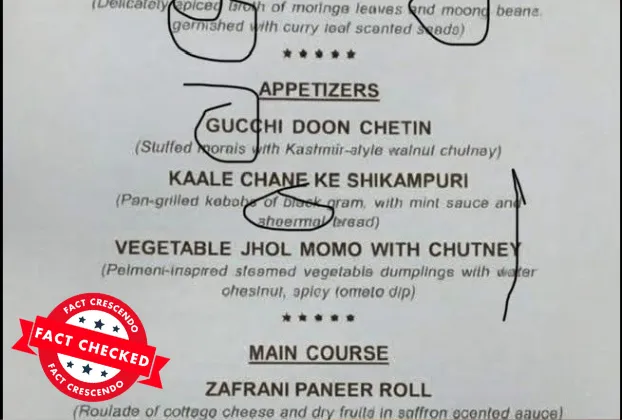 (Delicately spiced broth of moringa leaves and moong beans
gernished with curry leaf scented seeds)
*****
APPETIZERS
GUCCHI DOON CHETIN
(Stuffed morels with Kashmir-style walnut chutney)
KAALE CHANE KE SHIKAMPURI
(Pan-grilled kebabs of black gram, with mint sauce and
sheermal bread)
VEGETABLE JHOL MOMO WITH CHUTNEY
(Pelmeni-inspired steamed vegetable dumplings with water
chestnut, spicy tomato dip)
*****
MAIN COURSE
ZAFRANI PANEER ROLL
(Roulade of cottage cheese and dry fruits in saffron scented sauce)
FACT CRESCENDO
FACT CHECKED
FACT CRESCENDO